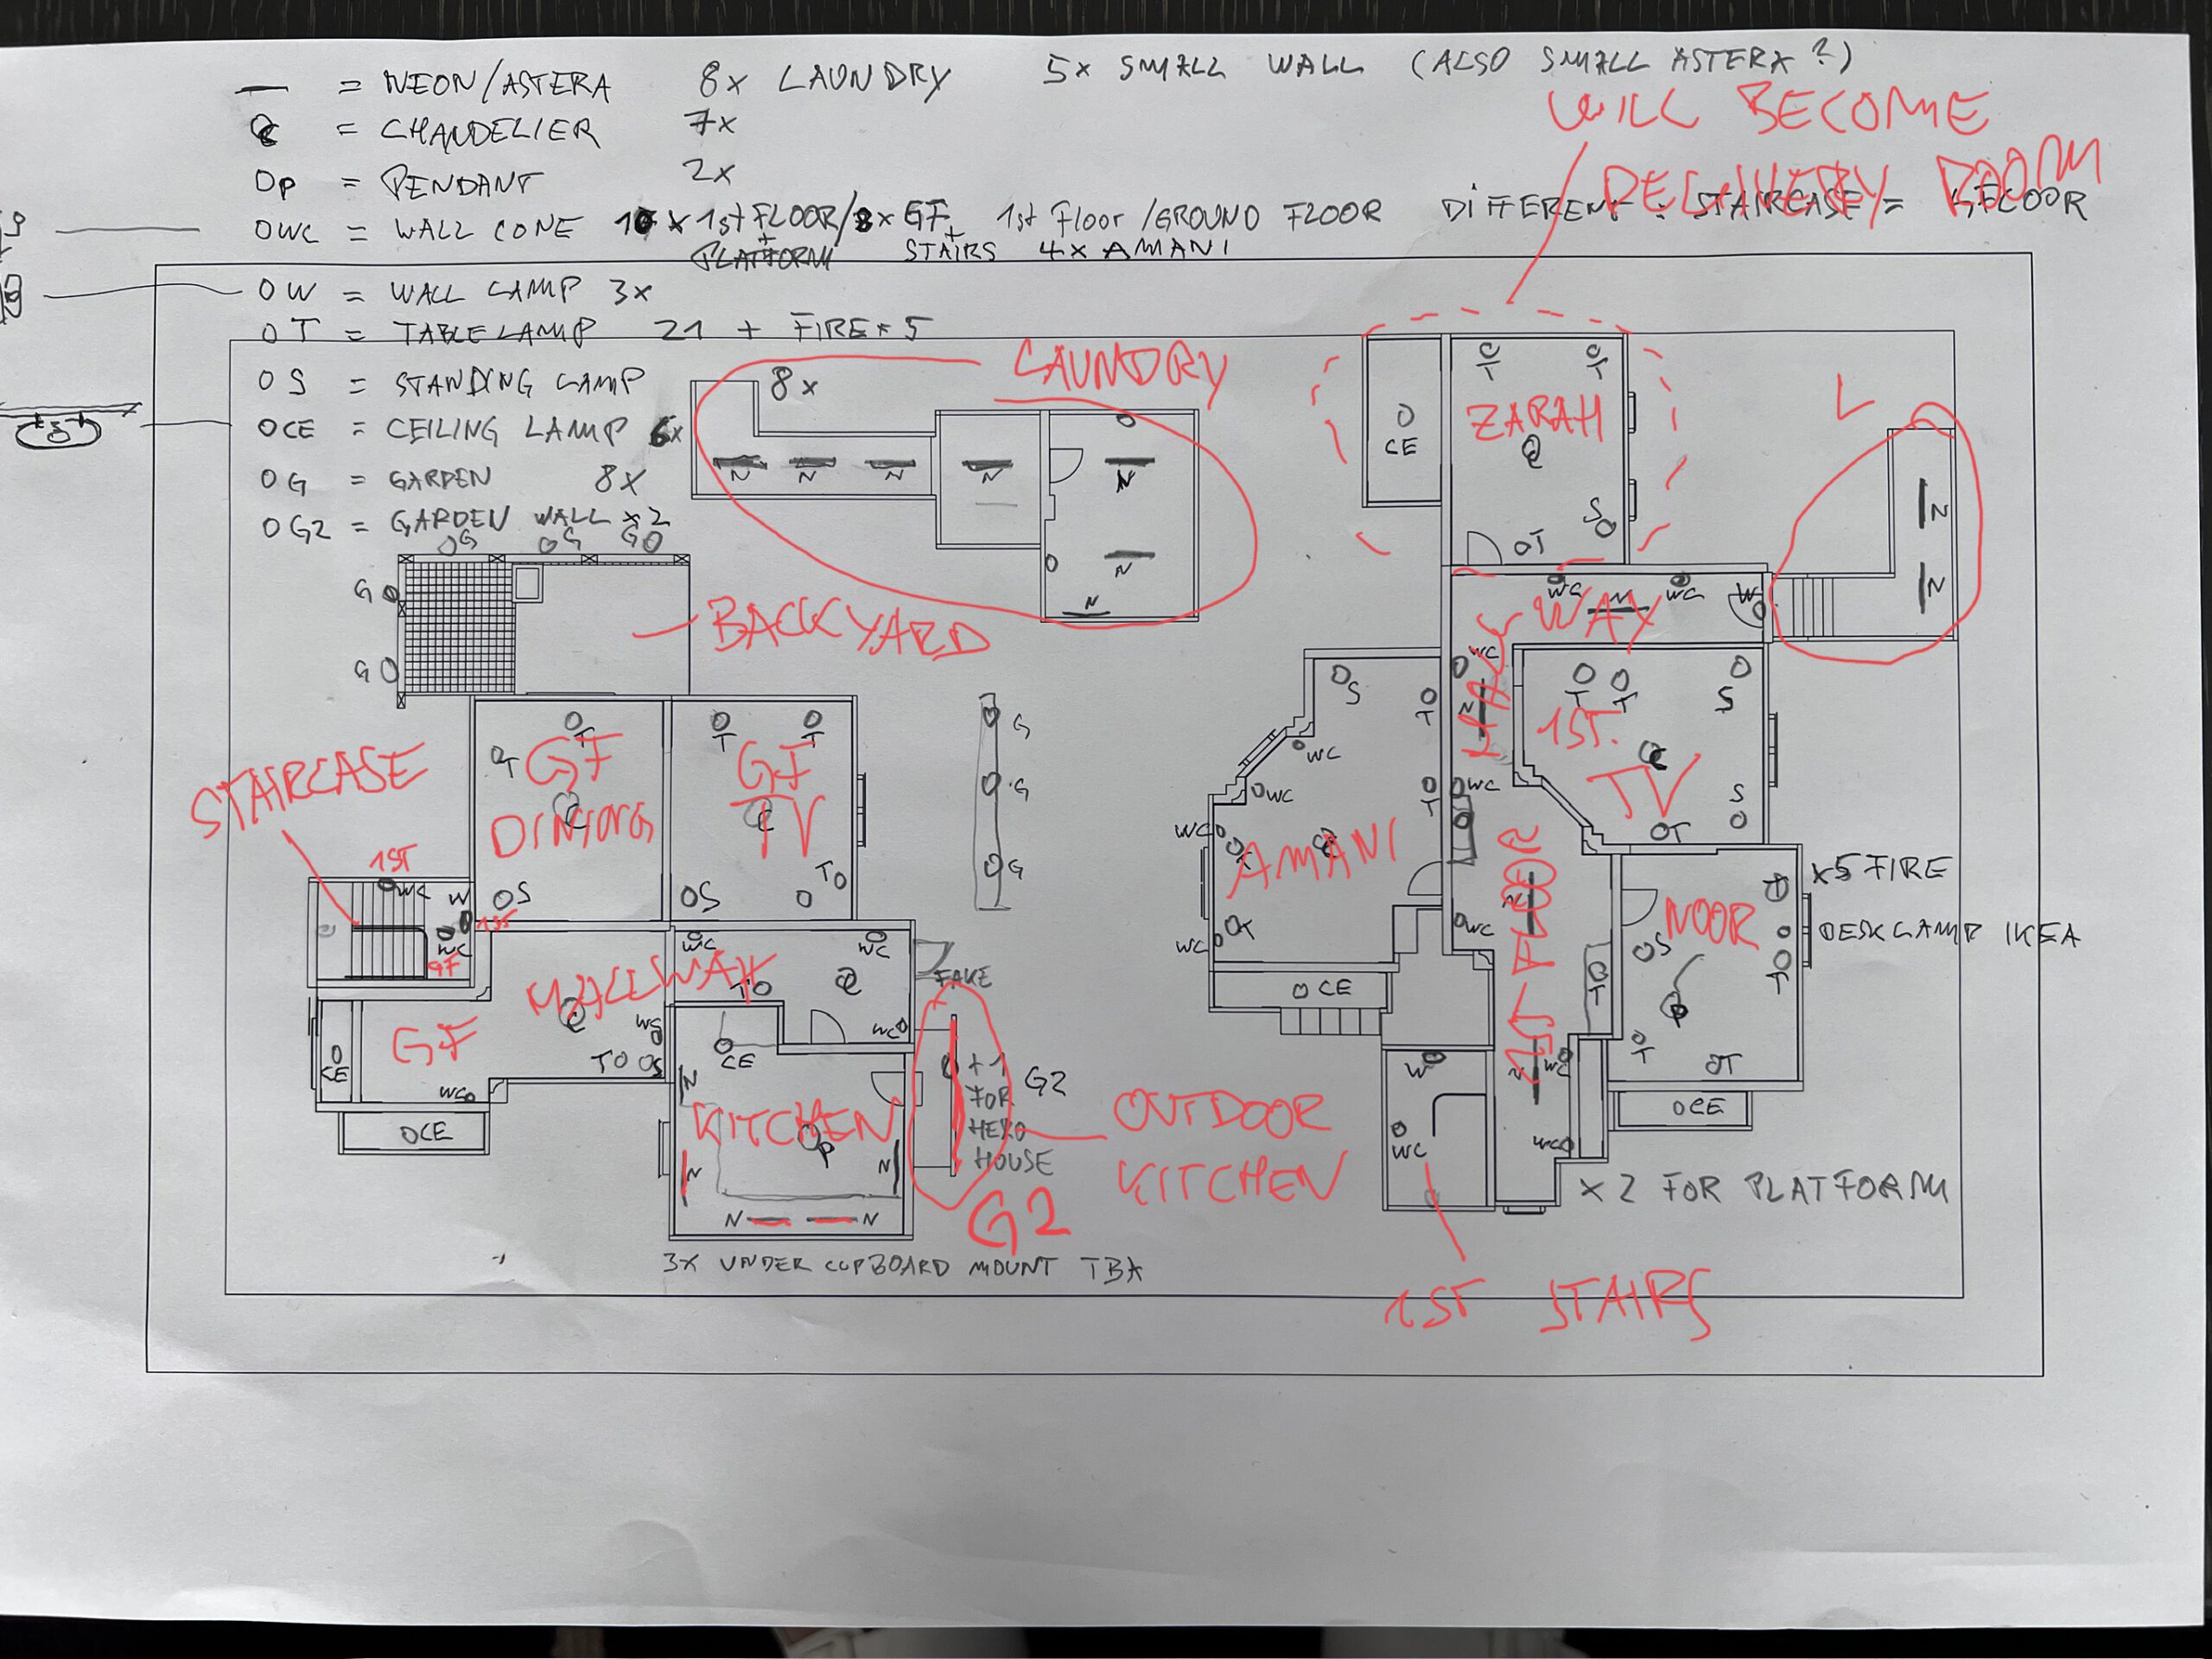 — = NEON/ASTERA 8x LAUNDRY 5x SMALL WALL (ALSO SMALL ASTERA ?)
C = CHANDELIER 7x
OP = PENDANT 2x
OWC = WALL CONE 10 x 1st FLOOR/8x GF 1st Floor /GROUND FLOOR DIFFERENT STAIRCASE =
+ PLATFORM + STAIRS 4x AMANI
OW = WALL LAMP 3x
OT = TABLE LAMP 21 + FIRE x 5
OS = STANDING LAMP
OCE = CEILING LAMP 6x
OG = GARDEN 8x
OG2 = GARDEN WALL x2
WILL BECOME
ROOM
LAUNDRY
8x
N N N N N
N
N
L
N
N
ZARAH
T T
C
CE
S
OT
G G G
G
G
BACKYARD
WC WC W
N
WAY
WC
N
WC
WC
STAIRCASE
GF
DINING
T
T
C
OS
GF
TV
T T
C
OS
TO
G
G
G
S
T
WC
WC
WC
T
AMANI
C
WC
OCE
1ST.
TV
T T S
C
S
OT
1ST
WC W
1ST
WC
GF
HALLWAY
GF
C
WC
TO
S
CE
WC
OCE
WC WC
TO
C
WC
FAKE
KITCHEN
CE
N
N
N
OP
N N
+ 1
FOR
HERO
HOUSE
G2
G2
OUTDOOR
KITCHEN
3X UNDER CUPBOARD MOUNT TBA
1ST FLOOR
N
N
WC
WC
OT
NOOR
OS
P
T
T
OT
OCE
x5 FIRE
DESK LAMP IKEA
W
WC
x 2 FOR PLATFORM
1ST STAIRS